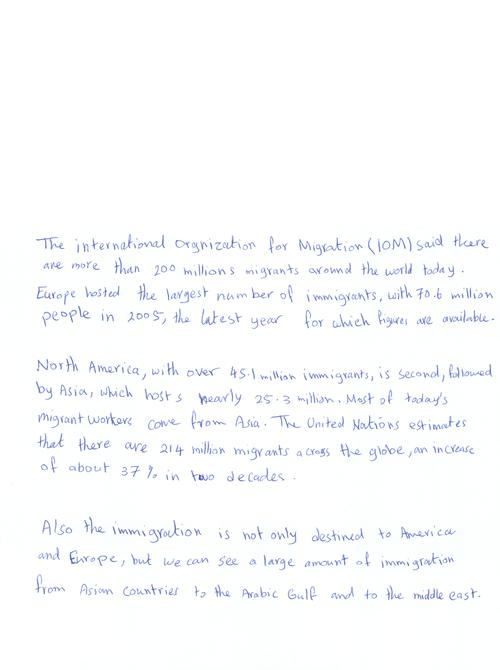 The international Orgnization for Migration (IOM) said there
are more than 200 millions migrants around the world today.
Europe hosted the largest number of immigrants, with 70.6 million
people in 2005, the latest year for which figures are available.
North America, with over 45.1 million immigrants, is second, followed
by Asia, which hosts nearly 25.3 million. Most of today's
migrant workers come from Asia. The United Nations estimates
that there are 214 million migrants across the globe, an increase
of about 37% in two decades.
Also the immigration is not only destined to America
and Europe, but we can see a large amount of immigration
from Asian Countries to the Arabic Gulf and to the middle east.